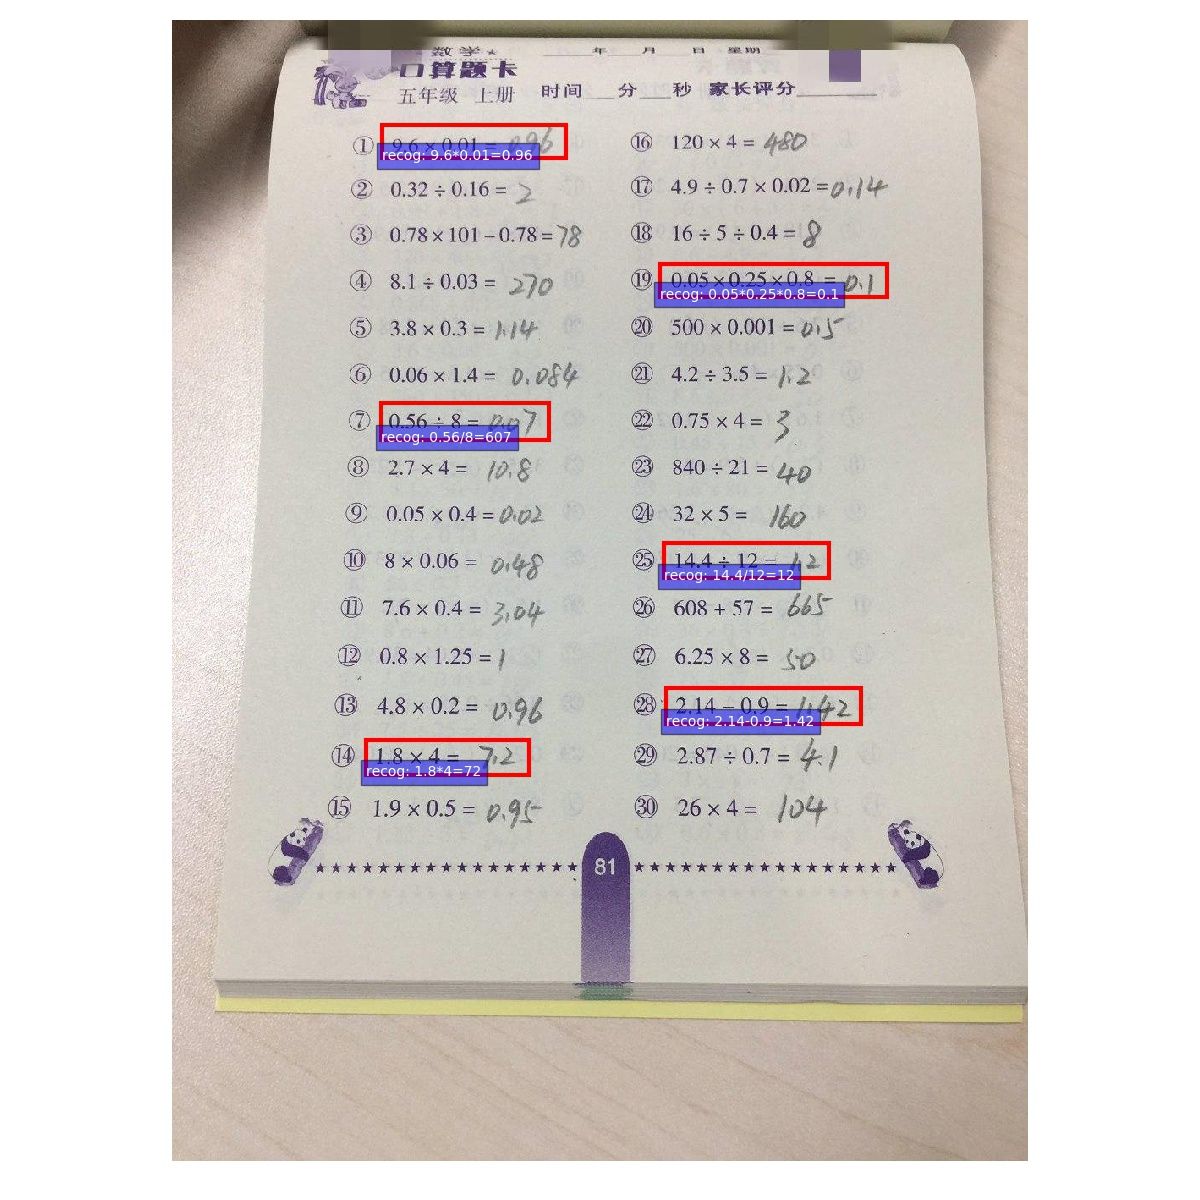 数学★ ____年____月____日 星期
口算题卡
五年级 上册 时间___分___秒 家长评分________
① 9.6 × 0.01 = 0.96
recog: 9.6*0.01=0.96
② 0.32 ÷ 0.16 = 2
③ 0.78 × 101 − 0.78 = 78
④ 8.1 ÷ 0.03 = 270
⑤ 3.8 × 0.3 = 1.14
⑥ 0.06 × 1.4 = 0.084
⑦ 0.56 ÷ 8 = 0.07
recog: 0.56/8=607
⑧ 2.7 × 4 = 10.8
⑨ 0.05 × 0.4 = 0.02
⑩ 8 × 0.06 = 0.48
⑪ 7.6 × 0.4 = 3.04
⑫ 0.8 × 1.25 = 1
⑬ 4.8 × 0.2 = 0.96
⑭ 1.8 × 4 = 7.2
recog: 1.8*4=72
⑮ 1.9 × 0.5 = 0.95
⑯ 120 × 4 = 480
⑰ 4.9 ÷ 0.7 × 0.02 = 0.14
⑱ 16 ÷ 5 ÷ 0.4 = 8
⑲ 0.05 × 0.25 × 0.8 = 0.1
recog: 0.05*0.25*0.8=0.1
⑳ 500 × 0.001 = 0.5
㉑ 4.2 ÷ 3.5 = 1.2
㉒ 0.75 × 4 = 3
㉓ 840 ÷ 21 = 40
㉔ 32 × 5 = 160
㉕ 14.4 ÷ 12 = 1.2
recog: 14.4/12=12
㉖ 608 + 57 = 665
㉗ 6.25 × 8 = 50
㉘ 2.14 − 0.9 = 1.42
recog: 2.14-0.9=1.42
㉙ 2.87 ÷ 0.7 = 4.1
㉚ 26 × 4 = 104
81